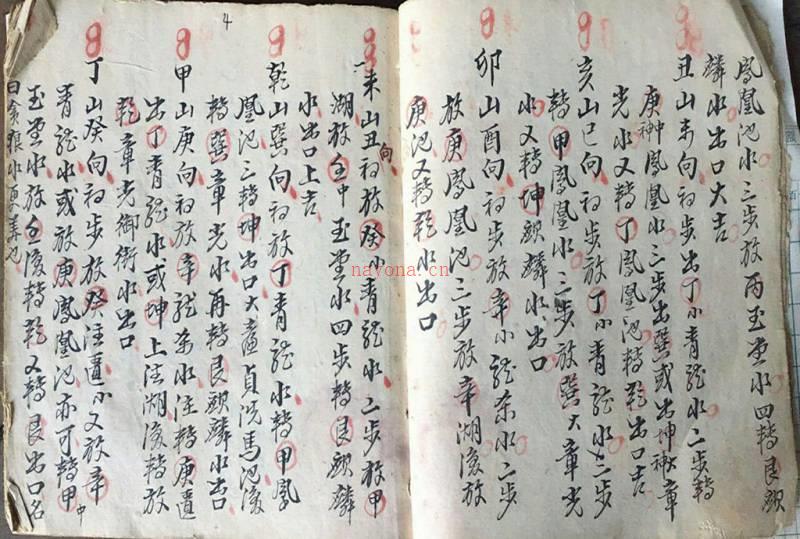 鳳凰池水三步放丙玉堂水四轉艮麒
麟水出口大吉
丑山未向初步出丁小青龍水二步轉
庚神鳳凰水三步出巽或出坤秘章
光水又轉丁鳳凰池轉乾出口吉
亥山巳向初步放丁小青龍水二步
轉甲鳳凰水三步放巽大章光
水又轉坤麒麟水出口
卯山酉向初步放辛小龍泉水二步
放庚鳳凰池三步放辛湖滾放
庚池又轉乾水出口
一未山丑向初放癸小青龍水二步放甲
湖放壬中玉堂水四步轉艮麒麟
水出口上吉
乾山巽向初放丁青龍水轉甲鳳
凰池三轉坤出口大 貞洗馬池滾
轉巽章光水再轉艮麒麟水出口
甲山庚向初放辛龍泉水注轉庚
出丁青龍水或坤上注湖滾轉放
乾章光御街水出口
丁山癸向初步放癸注 小又放辛
青龍水或放庚鳳凰池亦可轉甲中
玉堂水放壬滾轉乾又轉艮出口名
曰貪狼水 也
4
nayona.cn